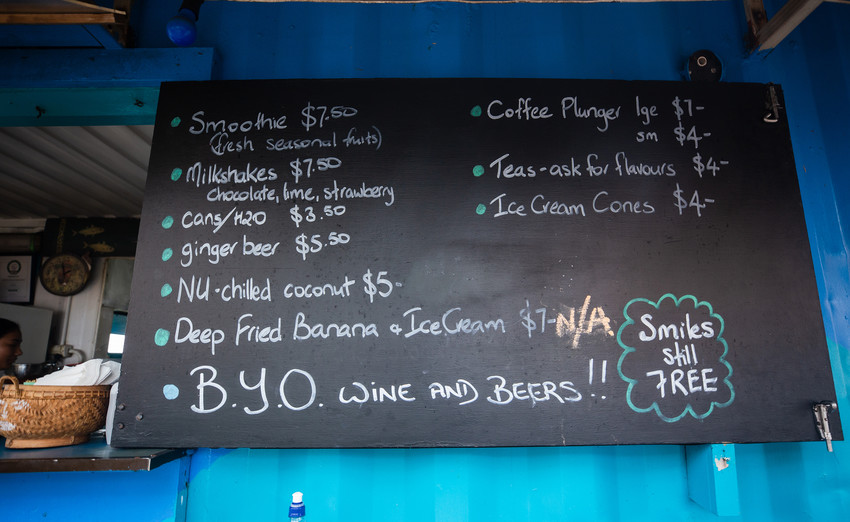 Smoothie $7.50
(fresh seasonal fruits)
Milkshakes $7.50
chocolate, lime, strawberry
cans/H2O $3.50
ginger beer $5.50
NU-chilled coconut $5-
Deep Fried Banana & Ice Cream $7- N/A
B.Y.O. WINE AND BEERS!!
Coffee Plunger lge $7-
sm $4-
Teas-ask for flavours $4-
Ice Cream Cones $4-
Smiles
still
FREE